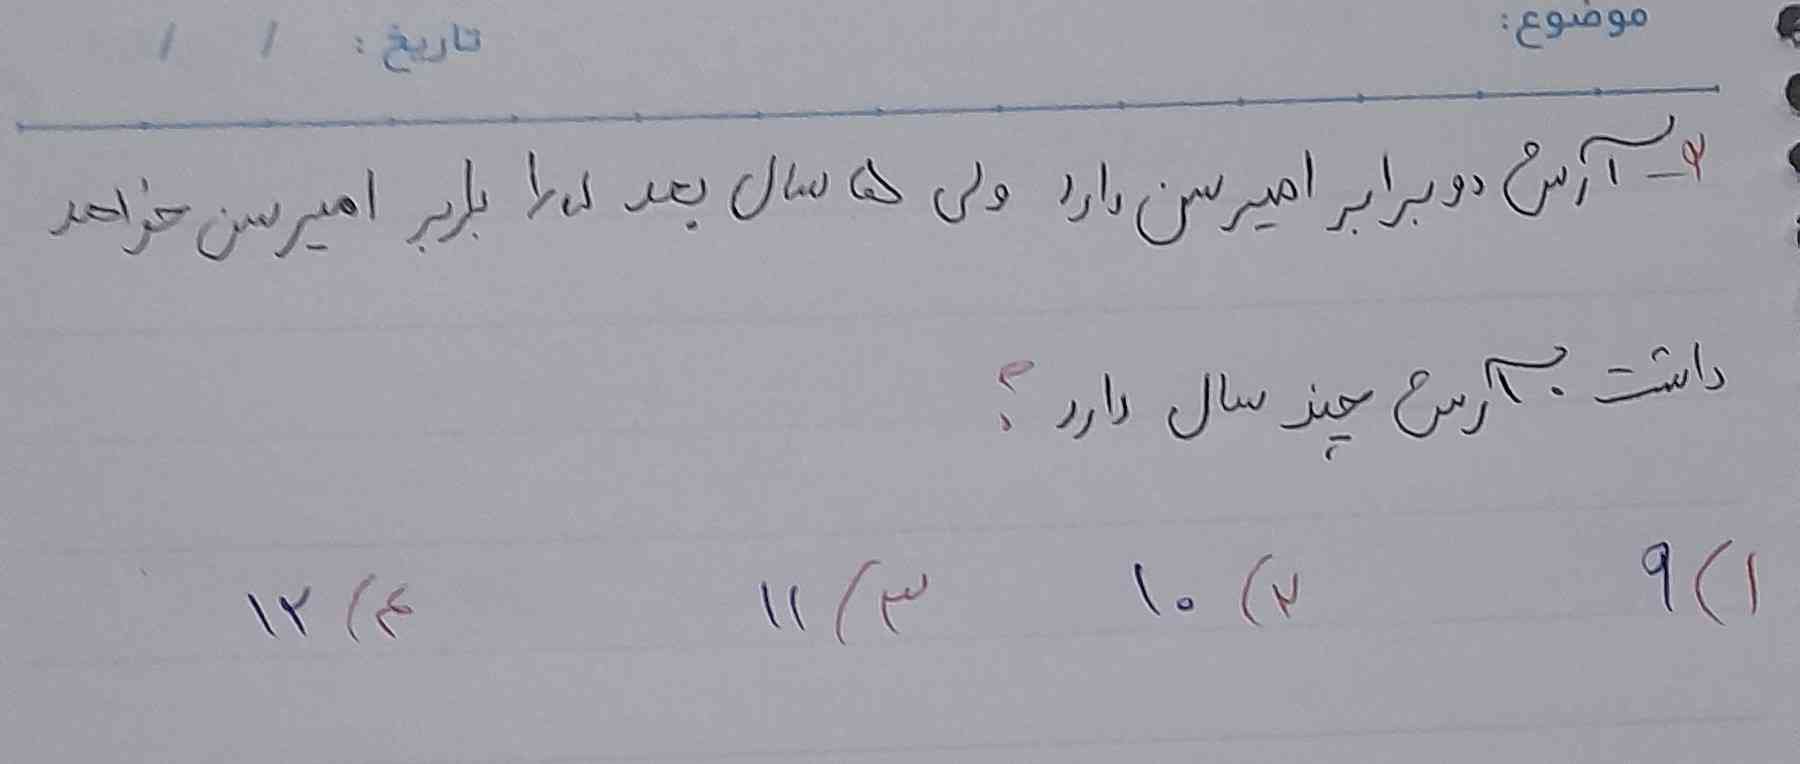 موضوع:
تاریخ: / /
۲- آرش دو برابر امیر سن دارد ولی ۵ سال بعد ۱٫۵ برابر امیر سن خواهد
داشت. آرش چند سال دارد؟
۱) ۹ ۲) ۱۰ ۳) ۱۱ ۴) ۱۲